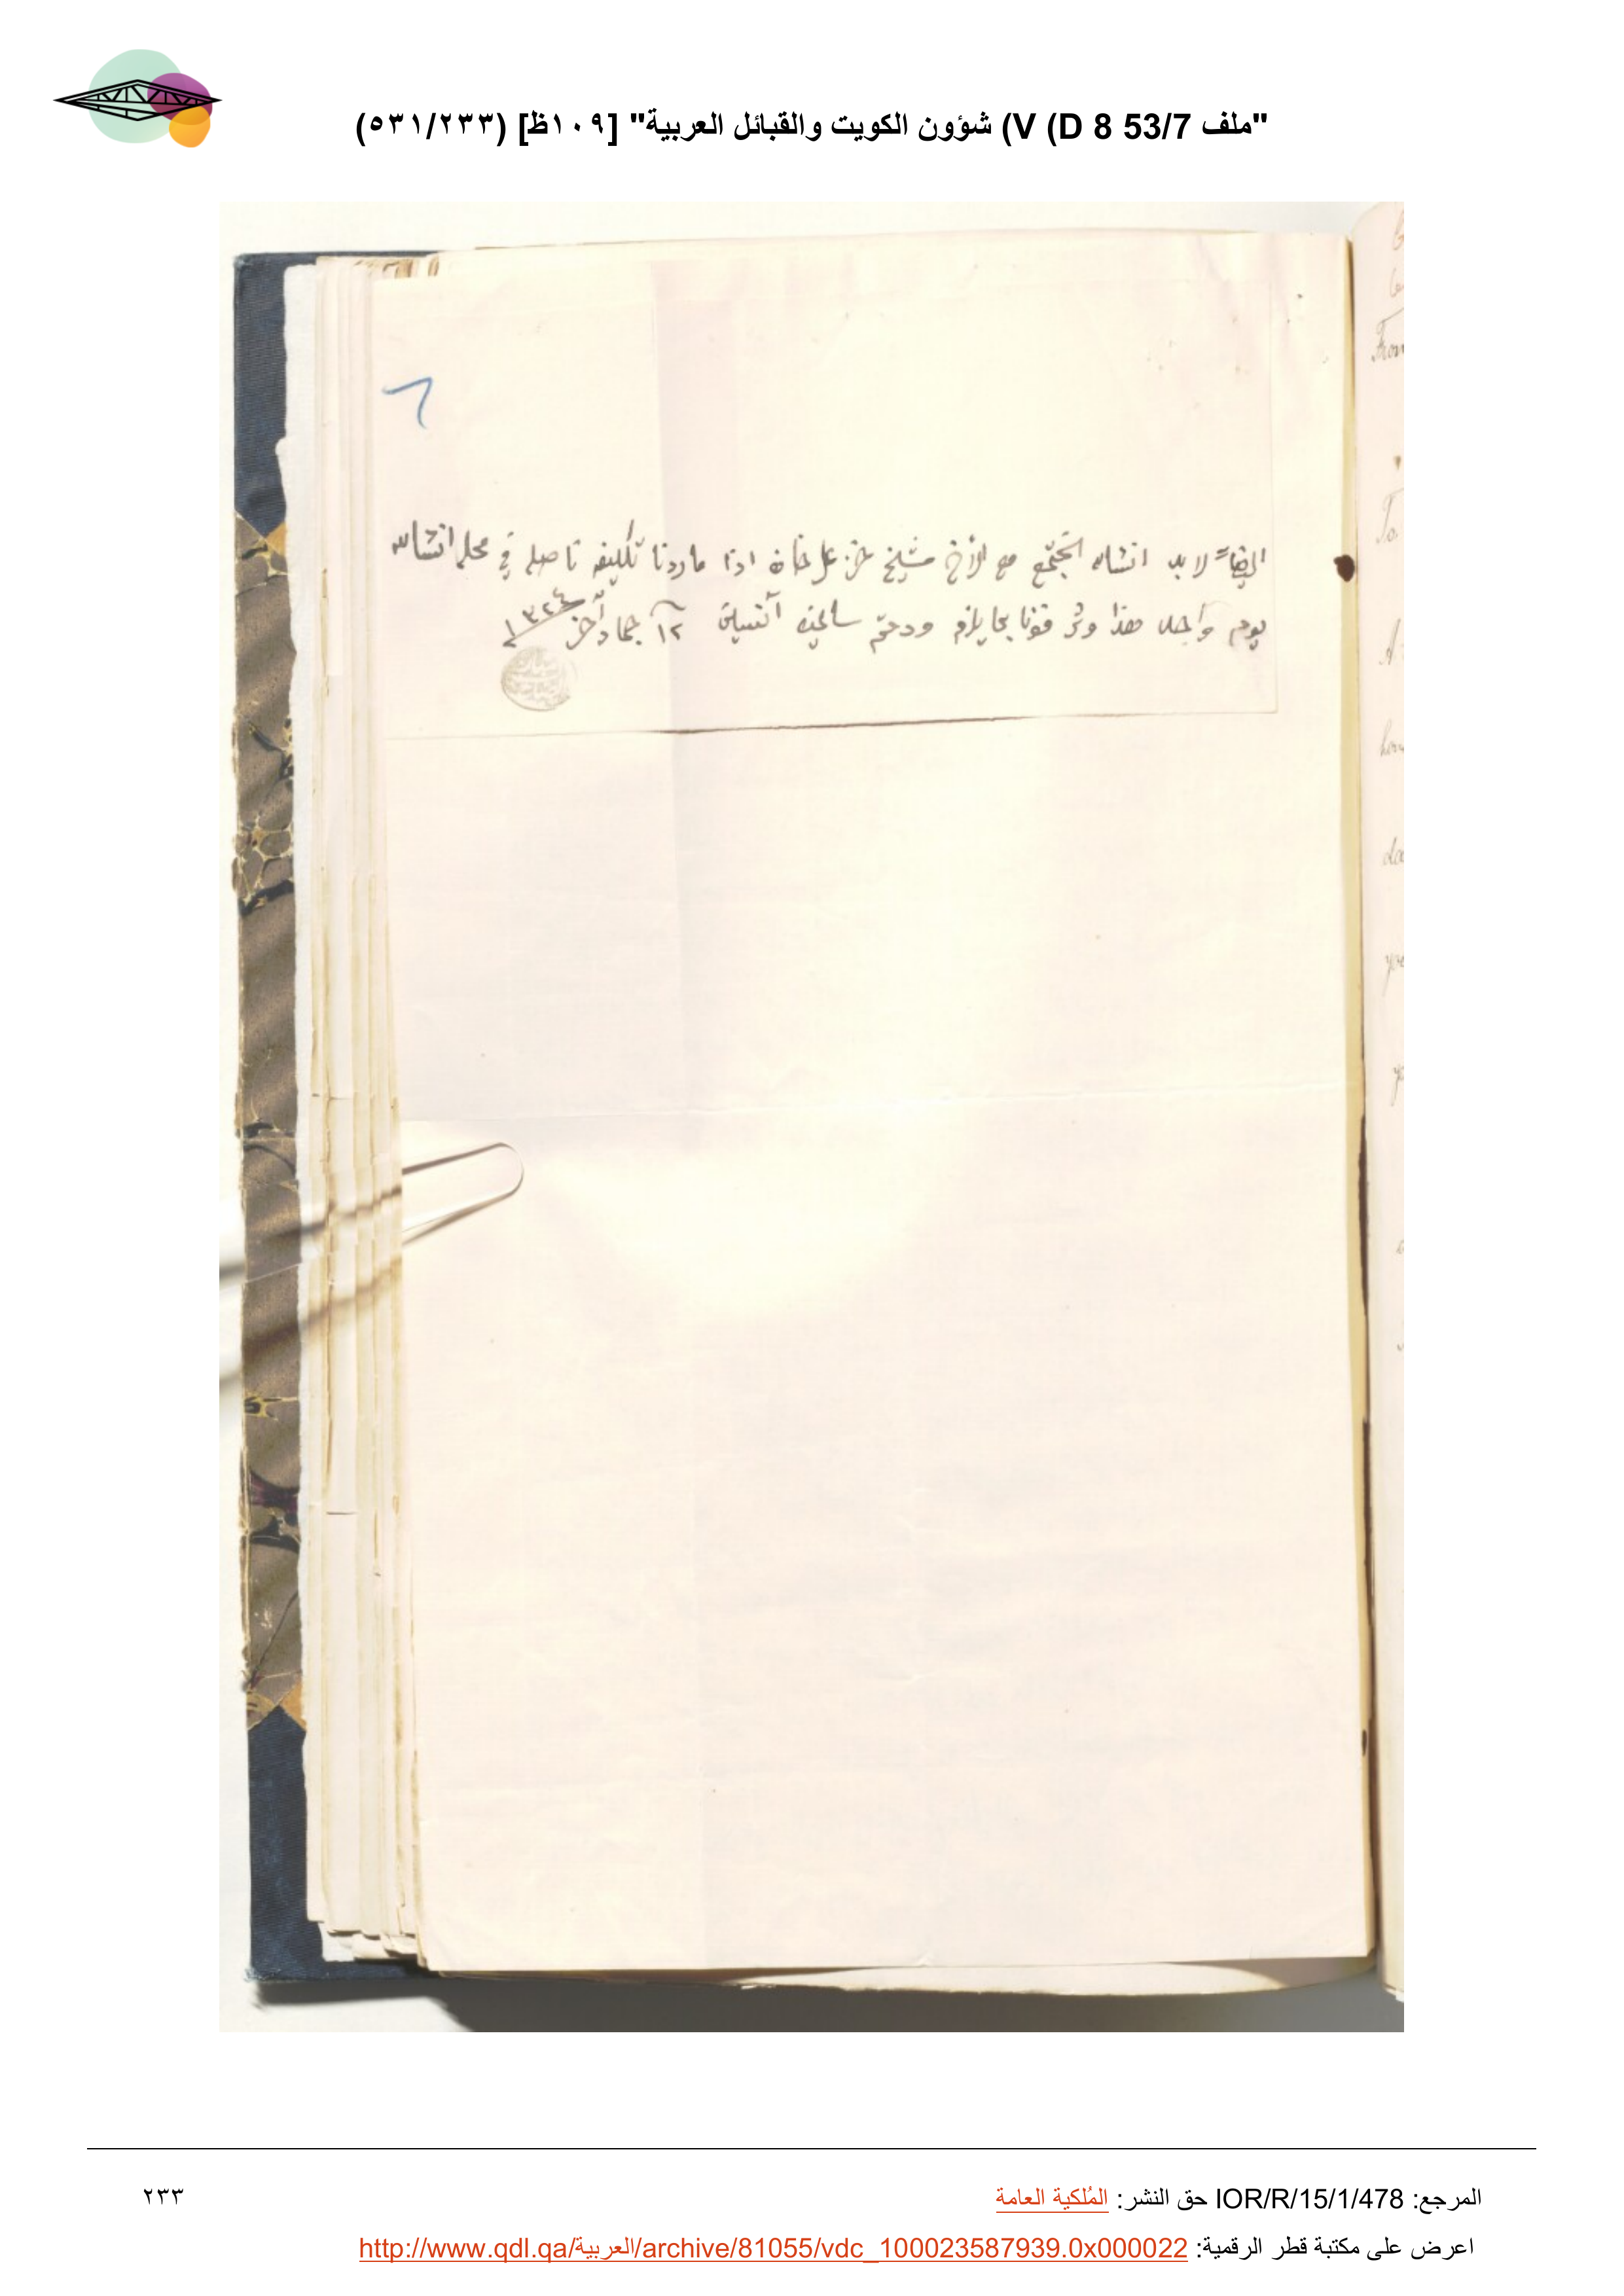 "ملف 53/7 V (D 8) شؤون الكويت والقبائل العربية" [١٠٩ظ] (٥٣١/٢٣٣)
٦
ايضاً لابد انشاالله انجتمع مع الأخ شيخ خزعل خان اذا ماردنا تكليفه ناصله في محله انشاالله
يوم واحد هذا وشرفونا بما يلزم ودمتم سالمين ١٢ جماد آخر ١٣٢٤
From
To
المرجع: IOR/R/15/1/478 حق النشر: المُلكية العامة
٢٣٣
اعرض على مكتبة قطر الرقمية: http://www.qdl.qa/العربية/archive/81055/vdc_100023587939.0x000022